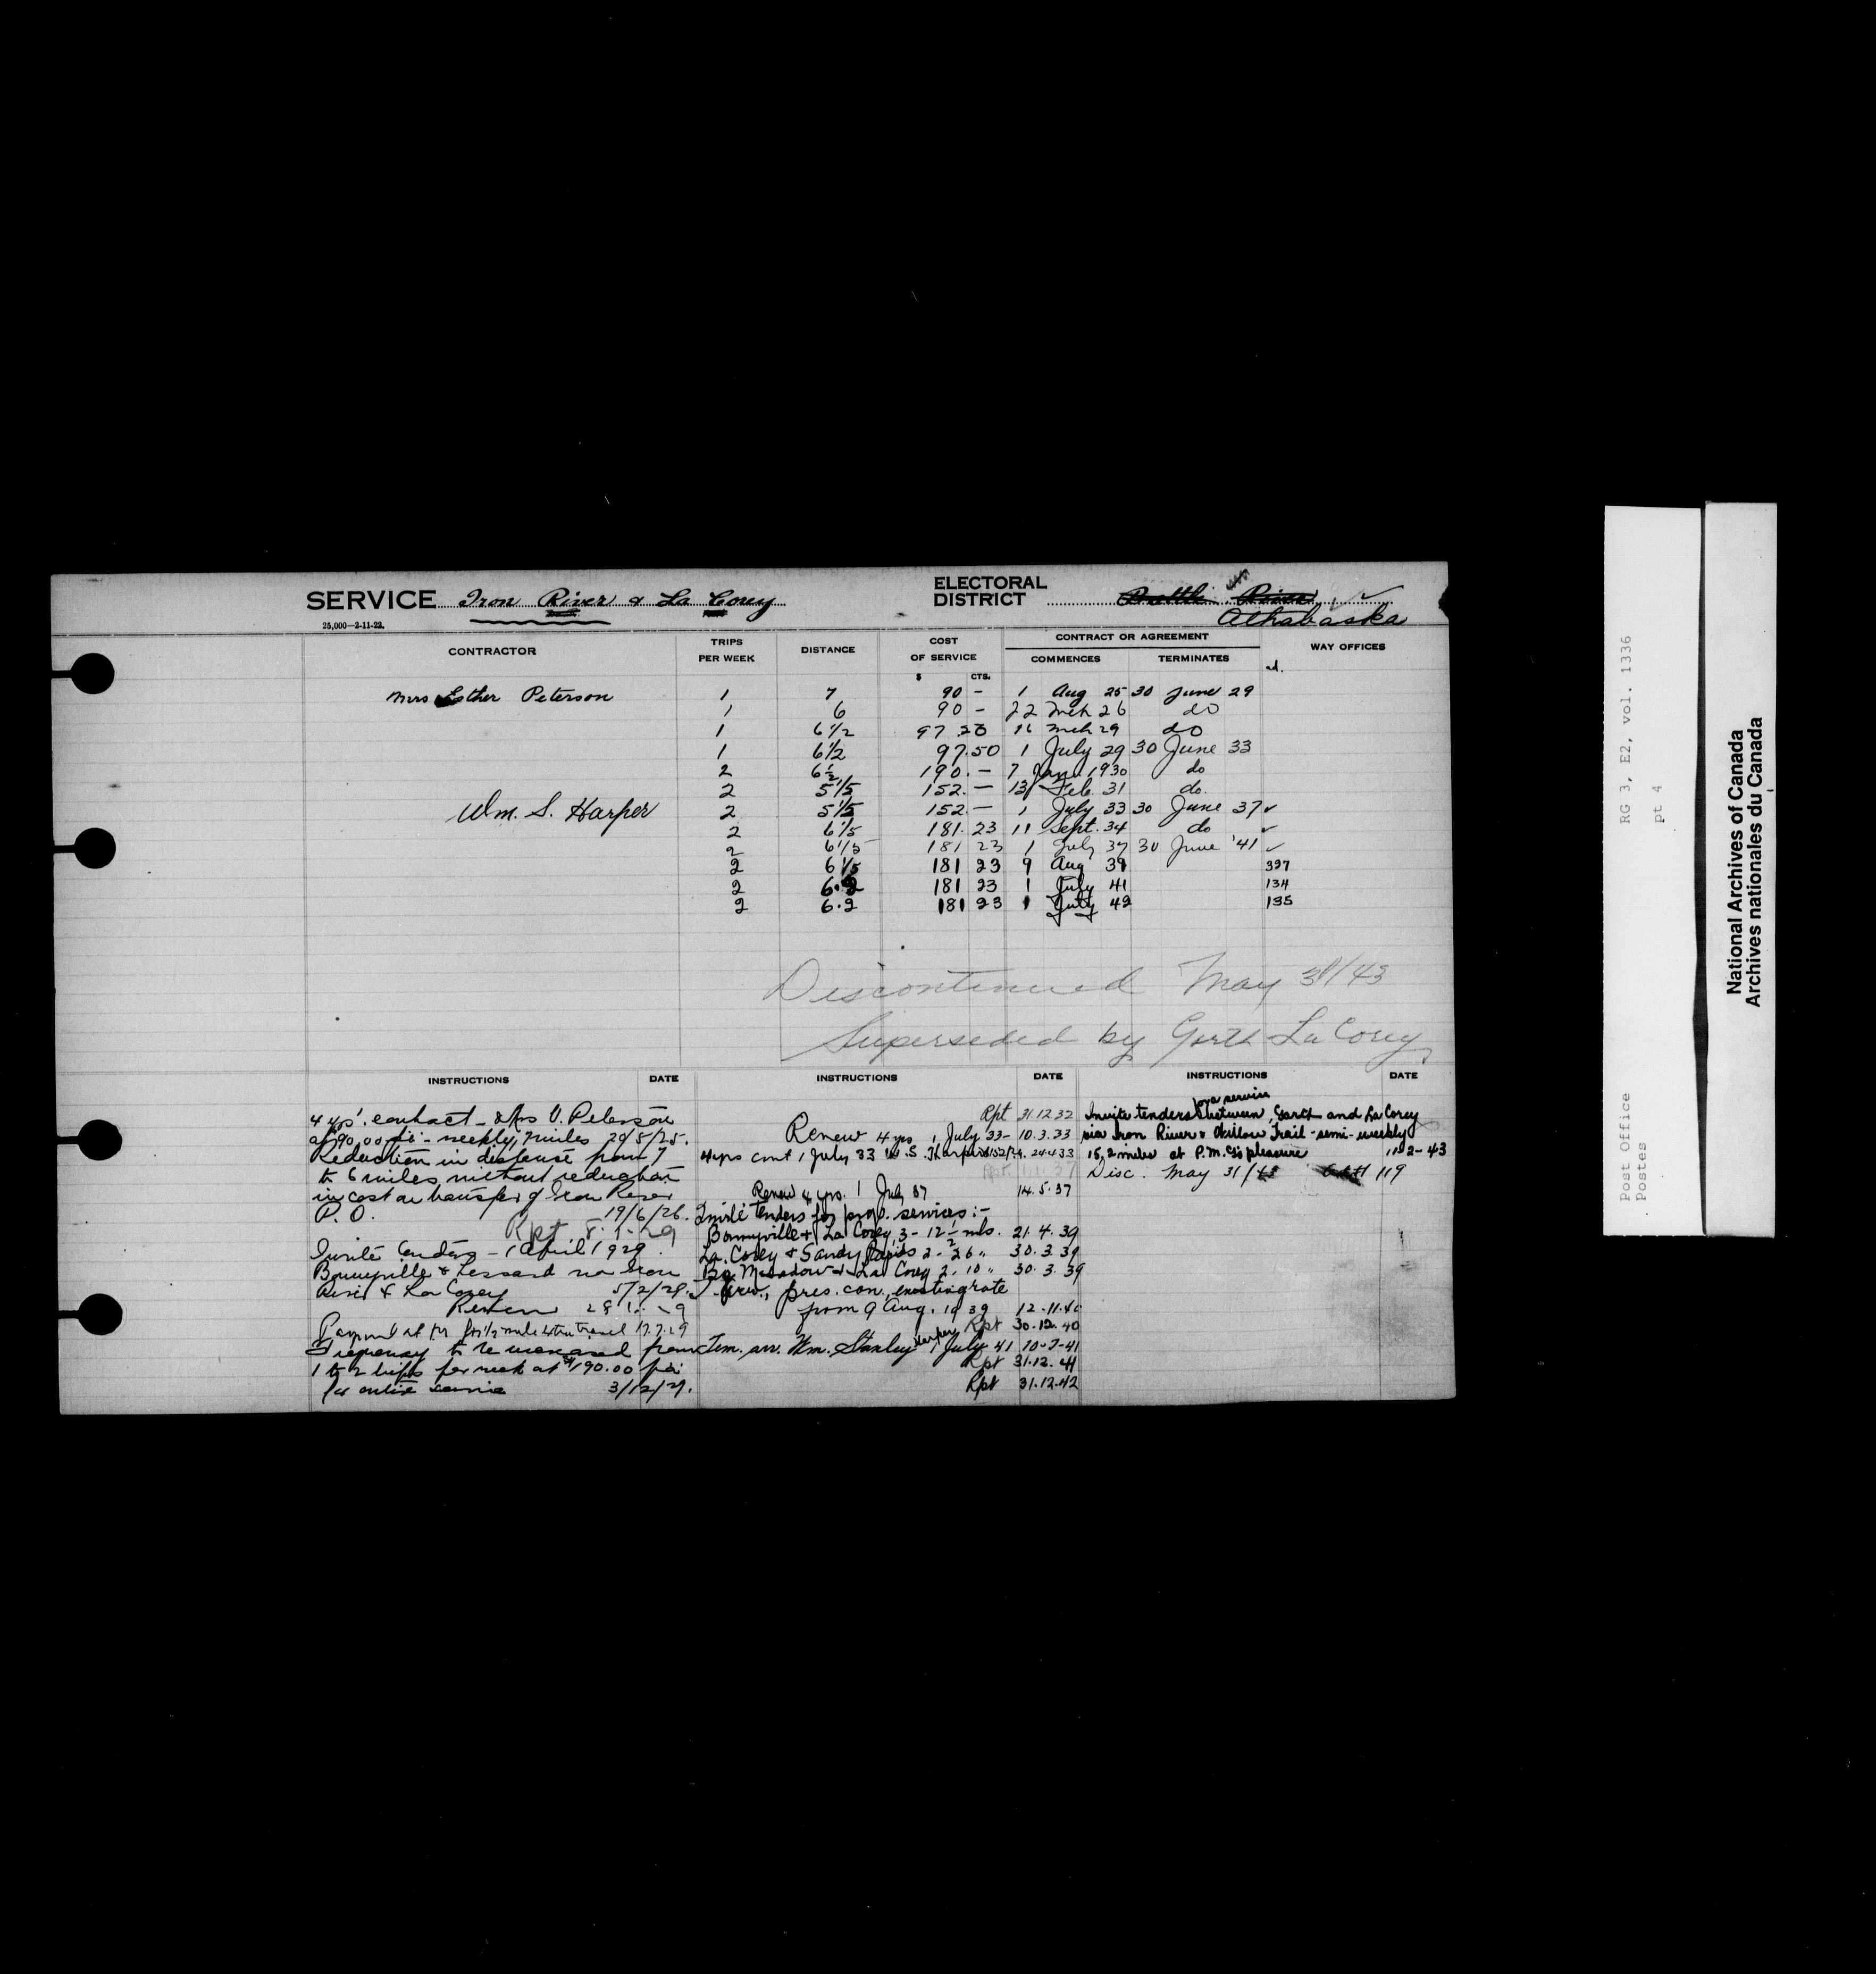 SERVICE Iron River & La Corey
ELECTORAL DISTRICT Battle River
Athabaska
25,000—2-11-22.
CONTRACTOR TRIPS PER WEEK DISTANCE COST OF SERVICE $ CTS. CONTRACT OR AGREEMENT COMMENCES TERMINATES WAY OFFICES
Mrs Esther Peterson 1 7 90 - 1 Aug 25 30 June 29
1 6 90 - 22 Mch 26 do
1 6 1/2 97 16 Mch 29 do
1 6 1/2 97.50 1 July 29 30 June 33
2 6 1/2 190. — 7 Jan 1930 do
2 5 1/5 152. — 13 Feb. 31 do.
Wm. S. Harper 2 5 1/5 152 — 1 July 33 30 June 37 ✓
2 6 1/5 181. 23 11 Sept. 34 do ✓
2 6 1/5 181 23 1 July 37 30 June '41 ✓
2 6 1/5 181 23 9 Aug 39 397
2 6.2 181 23 1 July 41 134
2 6.2 181 23 1 July 42 135
Discontinued May 31/43
Superseded by Gorth La Corey
INSTRUCTIONS DATE
4 yrs' contract - Mrs V. Peterson
at 90.00 - weekly, 7 miles 20/5/25.
Reduction in distance from 7
to 6 miles without reduction
in cost on transfer of Iron River
P. O. 19/6/26.
Rpt 8-1-29
Invite tenders - 1 April 1929.
Bonnyville & Lessard via Iron
River & La Corey 5/2/29.
Renew
Payment at for 1/2 mile extra travel 17.7.29
Frequency to be increased from
1 to 2 trips per week at $190.00 pa
for entire service 3/12/29.
INSTRUCTIONS DATE
Rpt 31.12.32
Renew 4 yrs 1 July 33- 10.3.33
4 yrs cont 1 July 33 W. S. Harper 24.4.33
Renew 4 yrs. 1 July 37 14.5.37
Invite tenders for prop. services:-
Bonnyville & La Corey, 3 - 12 1/2 mls. 21.4.39
La Corey & Sandy Rapids 2 - 26 " 30.3.39
Bg. Meadow & La Corey 2. 10 " 30.3.39
pres. con., existing rate
from 9 Aug. 1939 12.11.40
Rpt 30.12.40
Tem. arr. Wm. Stanley Harper 1 July 41 10-7-41
Rpt 31.12.41
Rpt 31.12.42
INSTRUCTIONS DATE
Invite tenders for a service between Gorth and La Corey
via Iron River & Willow Trail - semi-weekly
15.2 miles at P.M.G's pleasure 2-43
Disc. May 31/43 119
RG 3, E2, vol. 1336
pt 4
Post Office
Postes
National Archives of Canada
Archives nationales du Canada